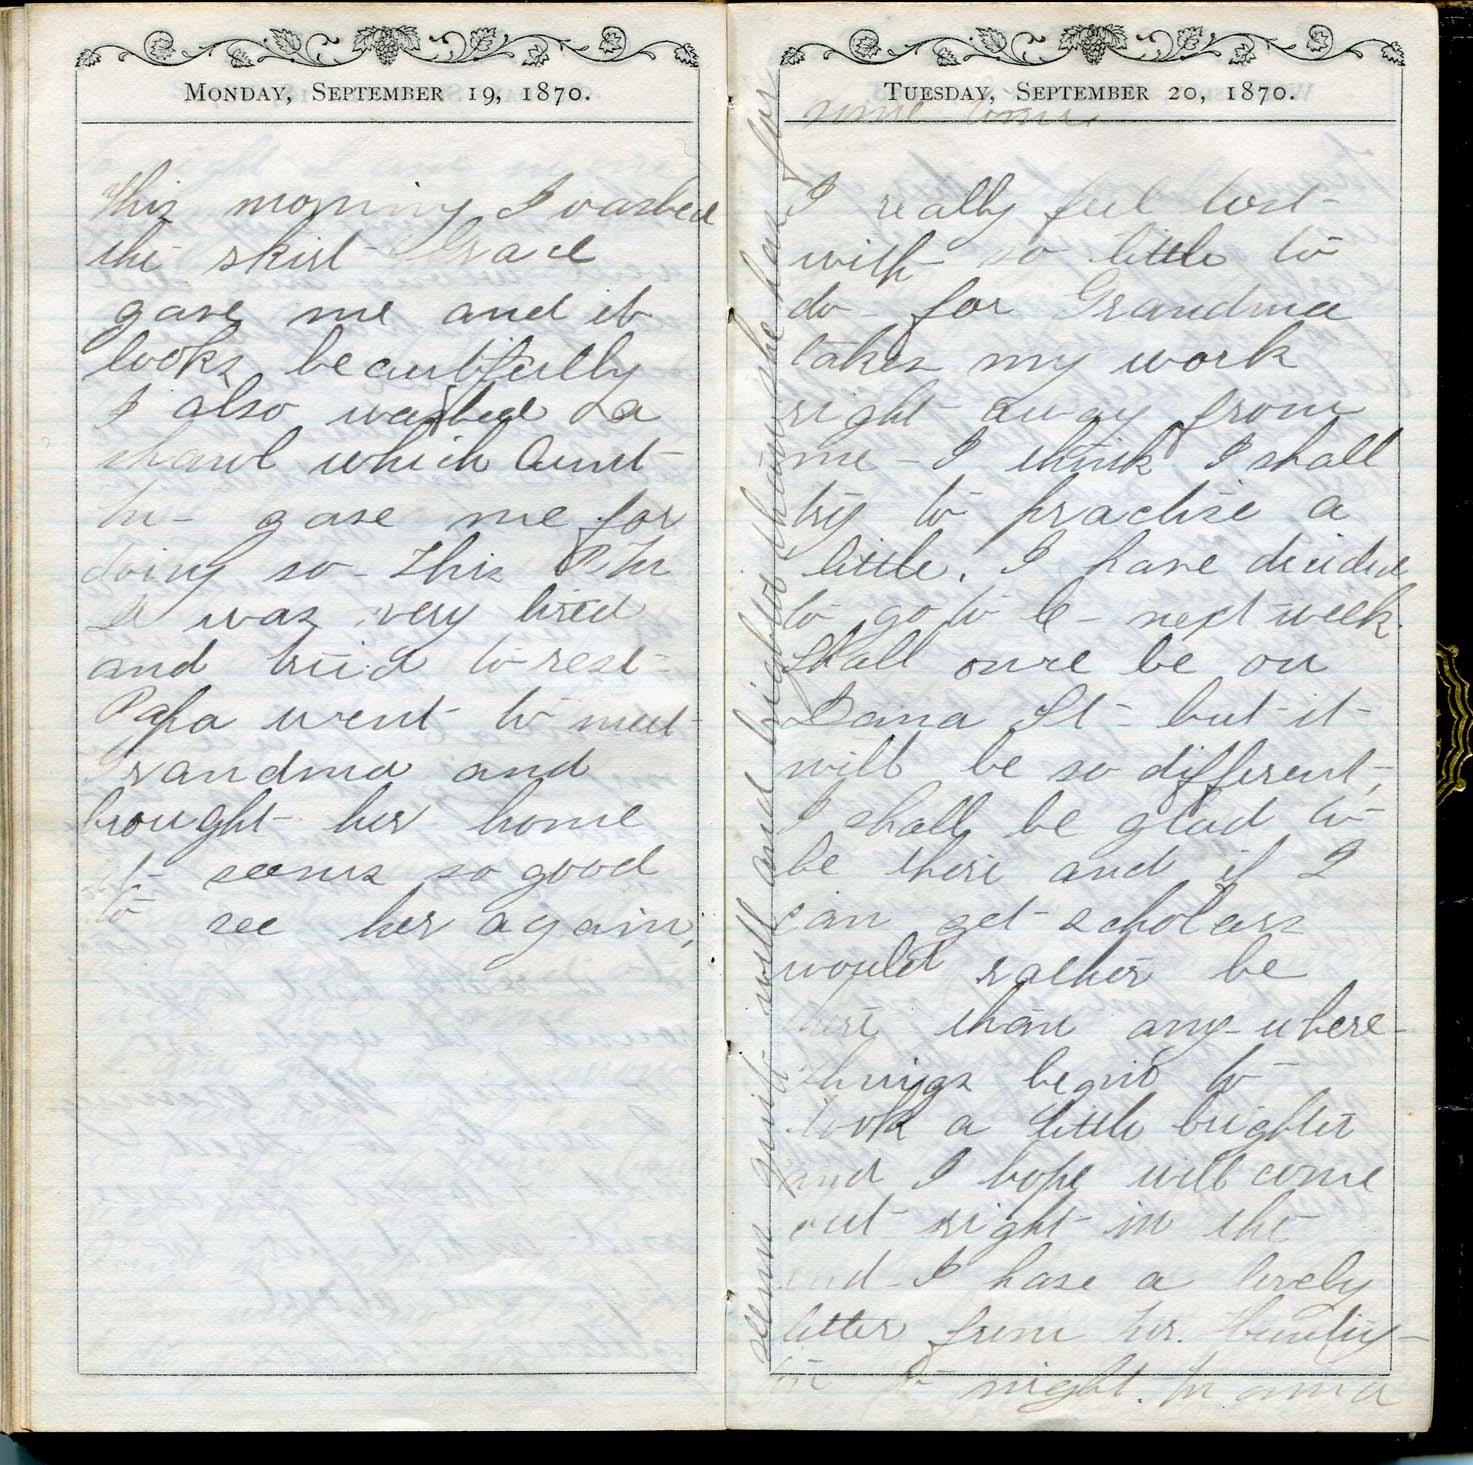 MONDAY, SEPTEMBER 19, 1870.
This morning I washed
the skirt Grace
gave me and it
looks beautifully
I also washed a
shawl which Aunt
M- gave me for
doing so - This P.M
I was very tired
and tried to rest -
Papa went to meet
Grandma and
brought her home
It seems so good
to see her again,
TUESDAY, SEPTEMBER 20, 1870.
I really feel lost -
with so little to
do - for Grandma
takes my work
right away from
me - I think I shall
try to practise a
little. I have decided
to go to C - next week.
Shall once be on
Dana St - but it -
will be so different -,
I shall be glad to
be there and if I
can get scholars
would rather be
there than any-where -
Things begin to
look a little brighter
and I hope will come
out right in the
end - I have a lovely
letter from Mr. Hunting-
ton to night. Mamma
seems quite well and brighter than she has for
some time.